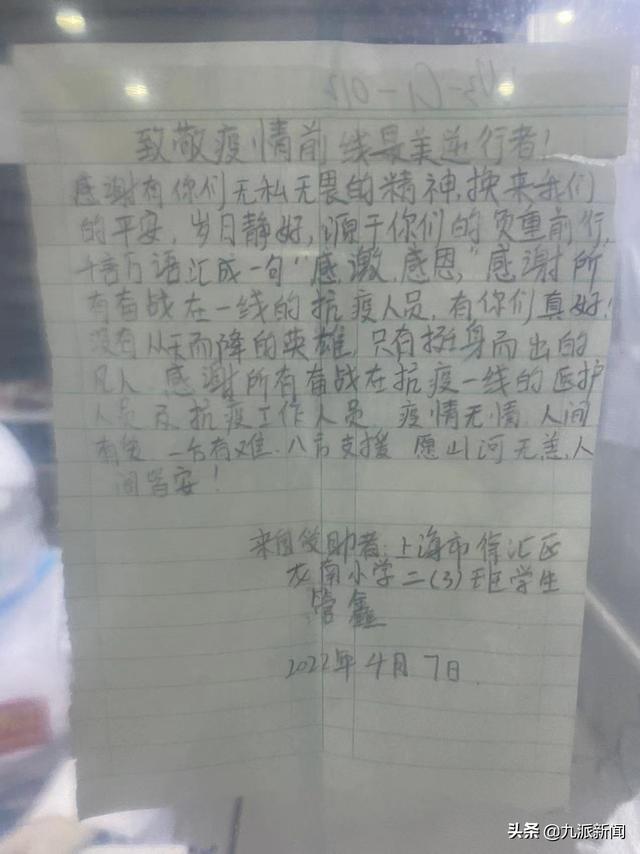 致敬疫情前线最美逆行者！
感谢有你们无私无畏的精神，换来我们
的平安，岁月静好，源于你们的负重前行，
千言万语汇成一句“感激，感恩，”感谢所
有奋战在一线的抗疫人员，有你们真好！
没有从天而降的英雄，只有挺身而出的
凡人 感谢所有奋战在抗疫一线的医护
人员及抗疫工作人员 疫情无情 人间
有爱 一方有难，八方支援 愿山河无恙，人
间皆安！
来自受助者：上海市徐汇区
龙南小学二（3）班学生
管鑫
2022年4月7日
头条 @九派新闻